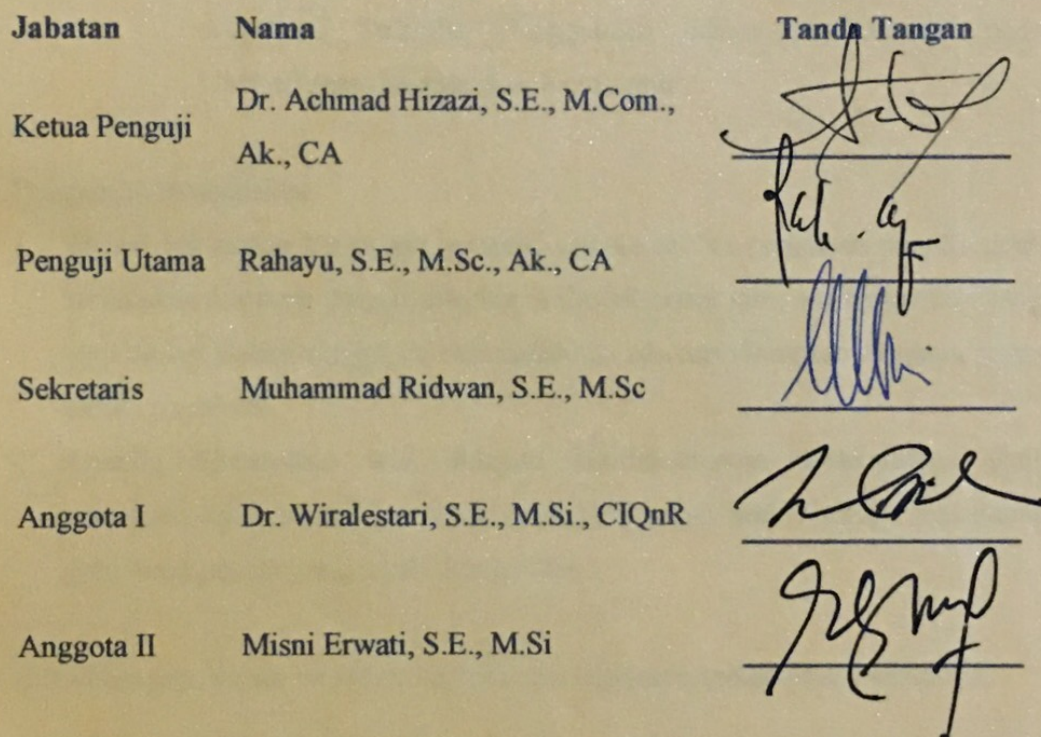 Jabatan Nama Tanda Tangan
Ketua Penguji Dr. Achmad Hizazi, S.E., M.Com.,
Ak., CA
Penguji Utama Rahayu, S.E., M.Sc., Ak., CA
Sekretaris Muhammad Ridwan, S.E., M.Sc
Anggota I Dr. Wiralestari, S.E., M.Si., CIQnR
Anggota II Misni Erwati, S.E., M.Si